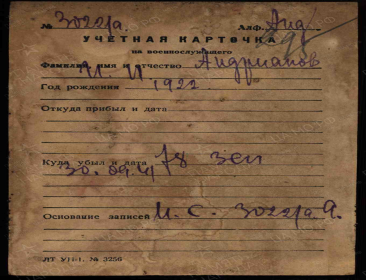 № 3022/а Алф. Анд
УЧЕТНАЯ КАРТОЧКА
на военнослужащего
Фамилия, имя и отчество Андрианов
Н. И.
Год рождения 1922
Откуда прибыл и дата
Куда убыл и дата 78 зсп
30.09.41
Основание записей И. С. 3022/а
ЛТ УП-1. № 3256